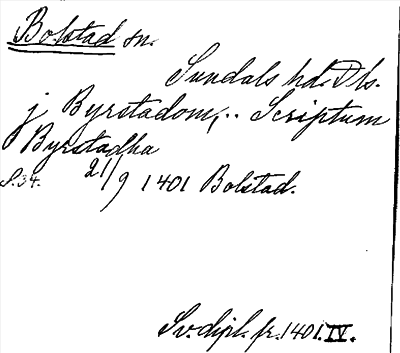 Bolstad sn.
Sundals hd. Dls.
j Byrstadom,.. Scriptum
Byrstadha
S.34. 21/9 1401 Bolstad.
Sv. dipl. fr. 1401. IV.